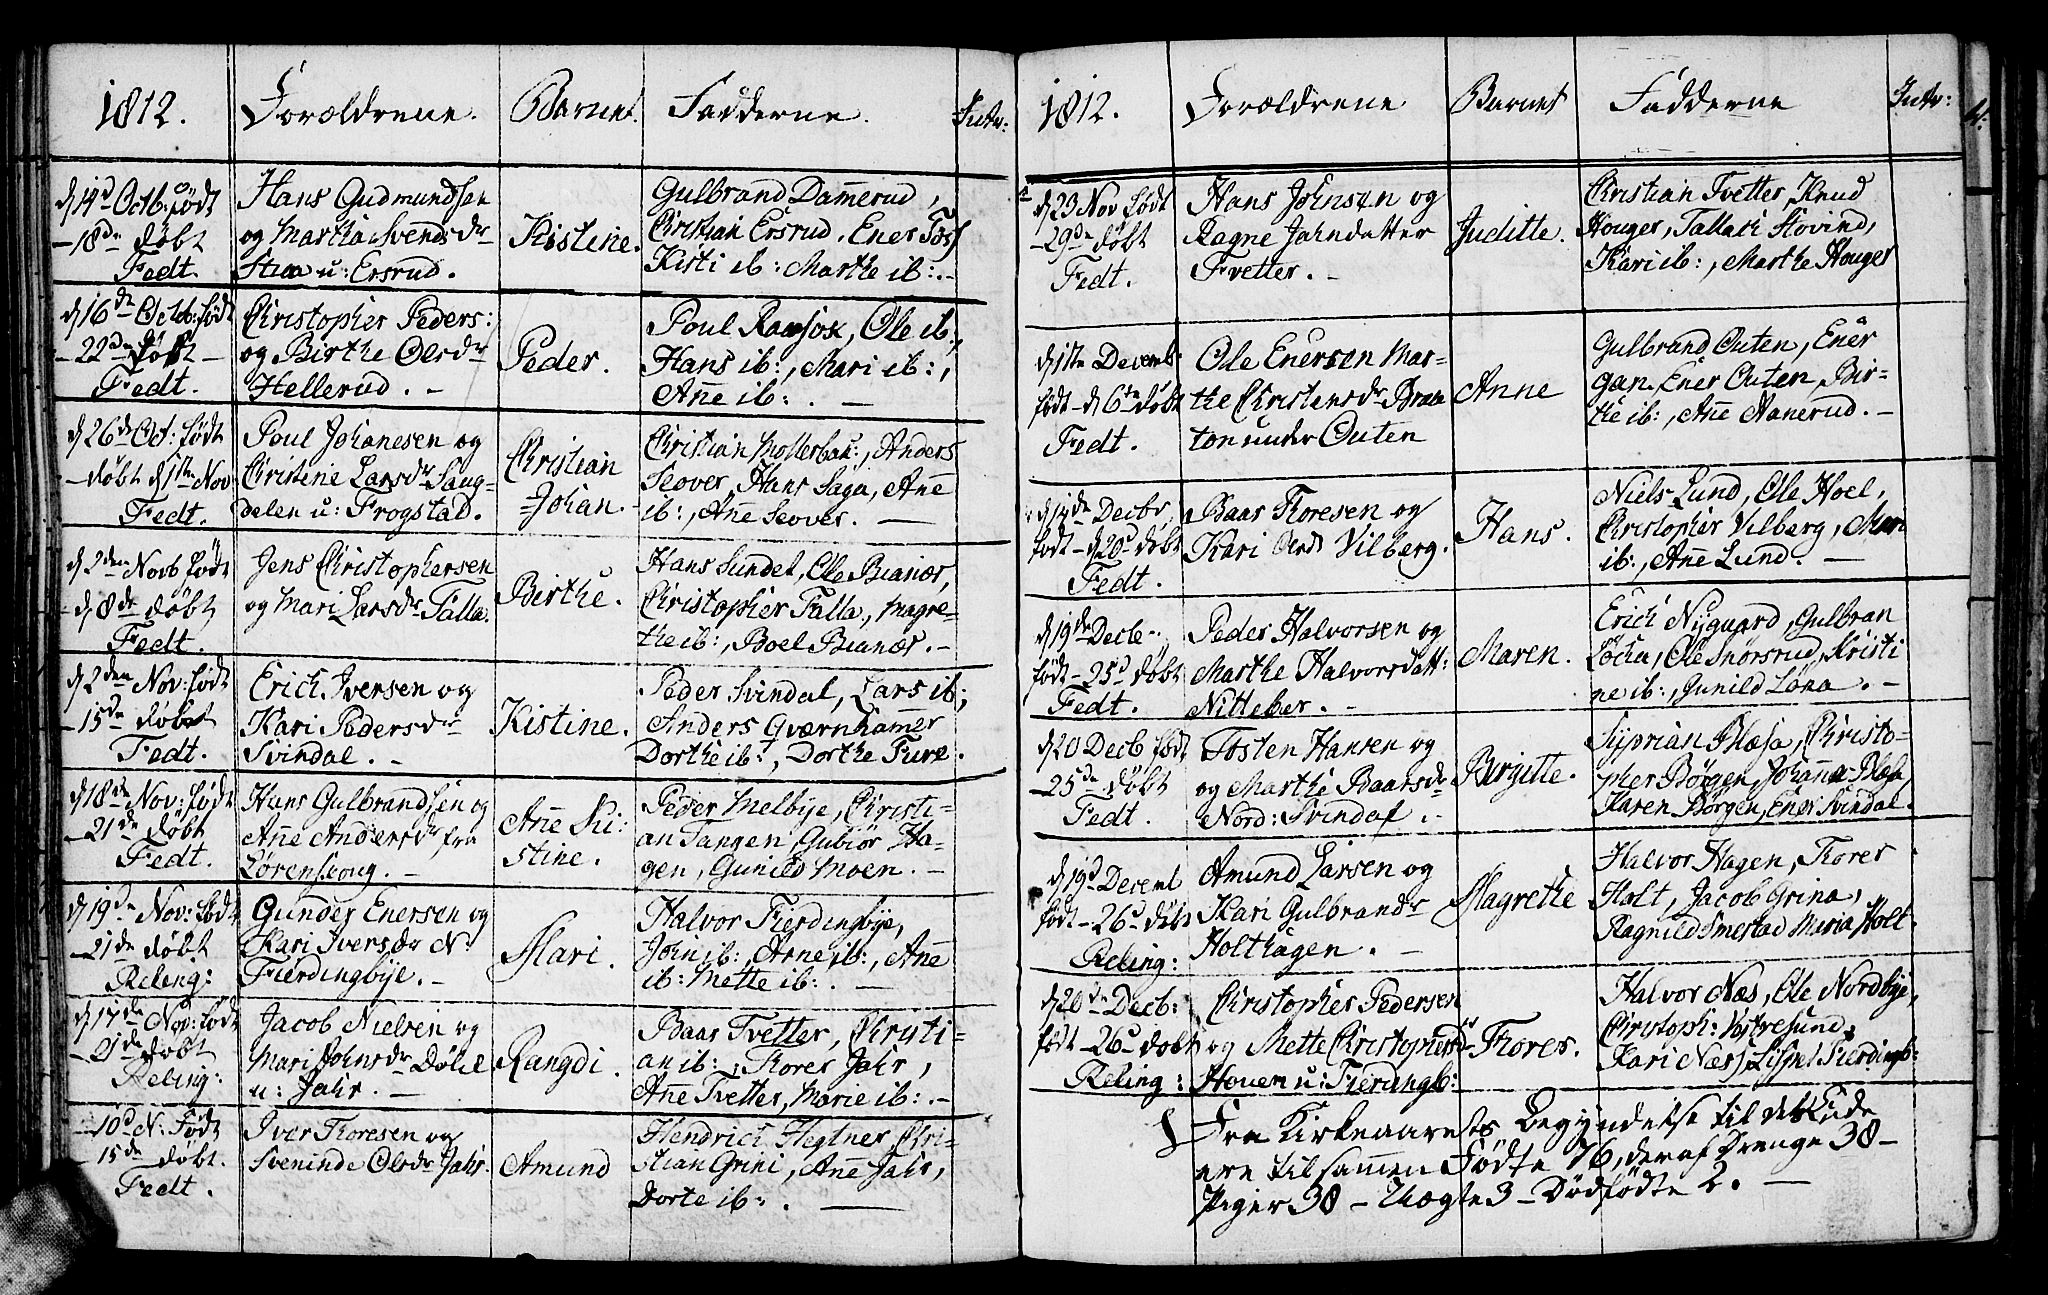 1812.
Forældrene.
Barnet.
Fadderne.
Intr:
d 14d Octb: født
- 18de døbt
Fedt.
Hans Gudmundsen
og Martha Svendsdr
Stua u: Ersrud.
Kistine.
Gulbrand Dam̄erud,
Christian Ersrud, Ener Foss
Kisti ib: Marthe ib: -
d 16de Octb: født
- 22de døbt -
Fedt.
Christopher Peders:
og Birthe Olsdr
Hellerud. -
Peder.
Poul Ramsox, Ole ib:,
Hans ib:, Mari ib:,
An̄e ib: . -
d 26d Oct: født
- døbt d 1ste Nov:
Fedt.
Poul Johanesen og
Christine Larsdr Saug-
dalen u: Frogstad.
Christian
=Johan. -
Christian Mollerbak:, Anders
Seover, Hans Saga, An̄e
ib:, Ane Seover. -
d 2den Novb født
- d 8de døbt
Fedt.
Jens Christophersen
og Mari Larsdr Falla.
Berthe.
Hans Sundet, Ole Bianæs,
Christopher Falla, Magre-
the ib:, Boel Bianæs. -
d 2den Nov: født
- 15de døbt
Fedt.
Erich Iversen og
Kari Pedersdr
Svindal. -
Kistine.
Peder Svindal, Lars ib:,
Anders Qværnham̄er
Dorthe ib:, Dorthe Fure.
d 18de Nov: født
- 21de døbt
Fedt.
Hans Gulbrandsen og
An̄e Andersdr fra
Lørenseoug. -
An̄e Ki:
stine.
Peder Melbye, Christi-
an Tangen, Gubiør Ha-
gen, Gunild Moen. -
d 19de Nov: født
- 21de døbt
Reling:
Gun̄der Enersen og
Kari Iversdr N:
Fierdingbye. -
Mari.
Halvor Fierdingbye,
John ib:, Arne ib:, An̄e
ib: Mette ib: . -
d 17de Nov: født
- 21de døbt
Reling:
Jacob Nielsen og
Mari Johnsdr Dølie
u: Jahr. -
Rangdi.
Baar Tvetter, Christi-
an ib:, Thorer Jahr,
An̄e Tvetter, Marie ib: . -
- 10d N: Født
15de døbt.
Fedt.
Iver Thoresen og
Sveninde Olsdr Jahr.
Amund
Hendrich Hegtner, Chri-
stian Grini, An̄e Jahr,
Dorte ib: . -
1812.
Forældrene
Barnet
Fadderne
Intr:
d 23 Nov født
- 29de døbt
Fedt.
Hans Johnsen og
Ragne Jahndatter
Tvetter. -
Juditte.
Christian Tvetter, Knud
Houger, Tallach Hovind,
Kari ib:, Marthe Houger
d 1ste Decemb:
født - d 6te døbt
Fedt.
Ole Enersen Mar-
the Christensdr Braa
ton under Outen
Anne
Gulbrand Outen, Ener
gan, Ener Outen, Bir-
the ib:, An̄e Aanerud. -
d 14de Decbr,
født - d 20d døbt
Fedt.
Baar Thoresen og
Kari Olsd Vilberg.
Hans.
Niels Lund, Ole Hoel,
Christopher Vilberg, Mari
ib:, An̄e Lund. -
d 19de Decb -
født - 25d døbt
Fedt.
Peder Halvorsen og
Marthe Halvorsdatt:
Nitteber. -
Maren.
Erich Nyguard, Gulbran
Løcka, Ole Snørsrud, Kristi
ne ib:, Gunild Løna. -
d 20 Decb født
- 25de døbt
Fedt.
Tosten Hansen og
og Marthe Baarsdr
Nord: Svindal. -
Birgitte.
Syprian Plæsa, Christo-
pher Børgen, Johanna Plæsa,
Karen Børgen, Ener Svindal.
d 19d Decemb
født - 26d døbt
Reling:
Amund Larsen og
Kari Gulbrandr
Holthagen. -
Magrethe
Halvor Hagen, Thorer
Holt, Jacob Grina,
Ragnild Smestad Maria Holt.
d 20de Decb:
født - 26d døbt
Reling:
Christopher Pedersen
og Mette Christophersdr
Houen u: Fierdingb:
Thorer.
Halvor Næs, Ole Nordbye,
Christoph: Vestresund,
Kari Næs, Lispet Fierdingb:
Fra Kirkeaarets Begyndelse til dets Ende
ere tilsam̄en Fødte 76, deraf Drenge 38 -
Piger 38 - Uægte 3 - Dødfødte 2. -